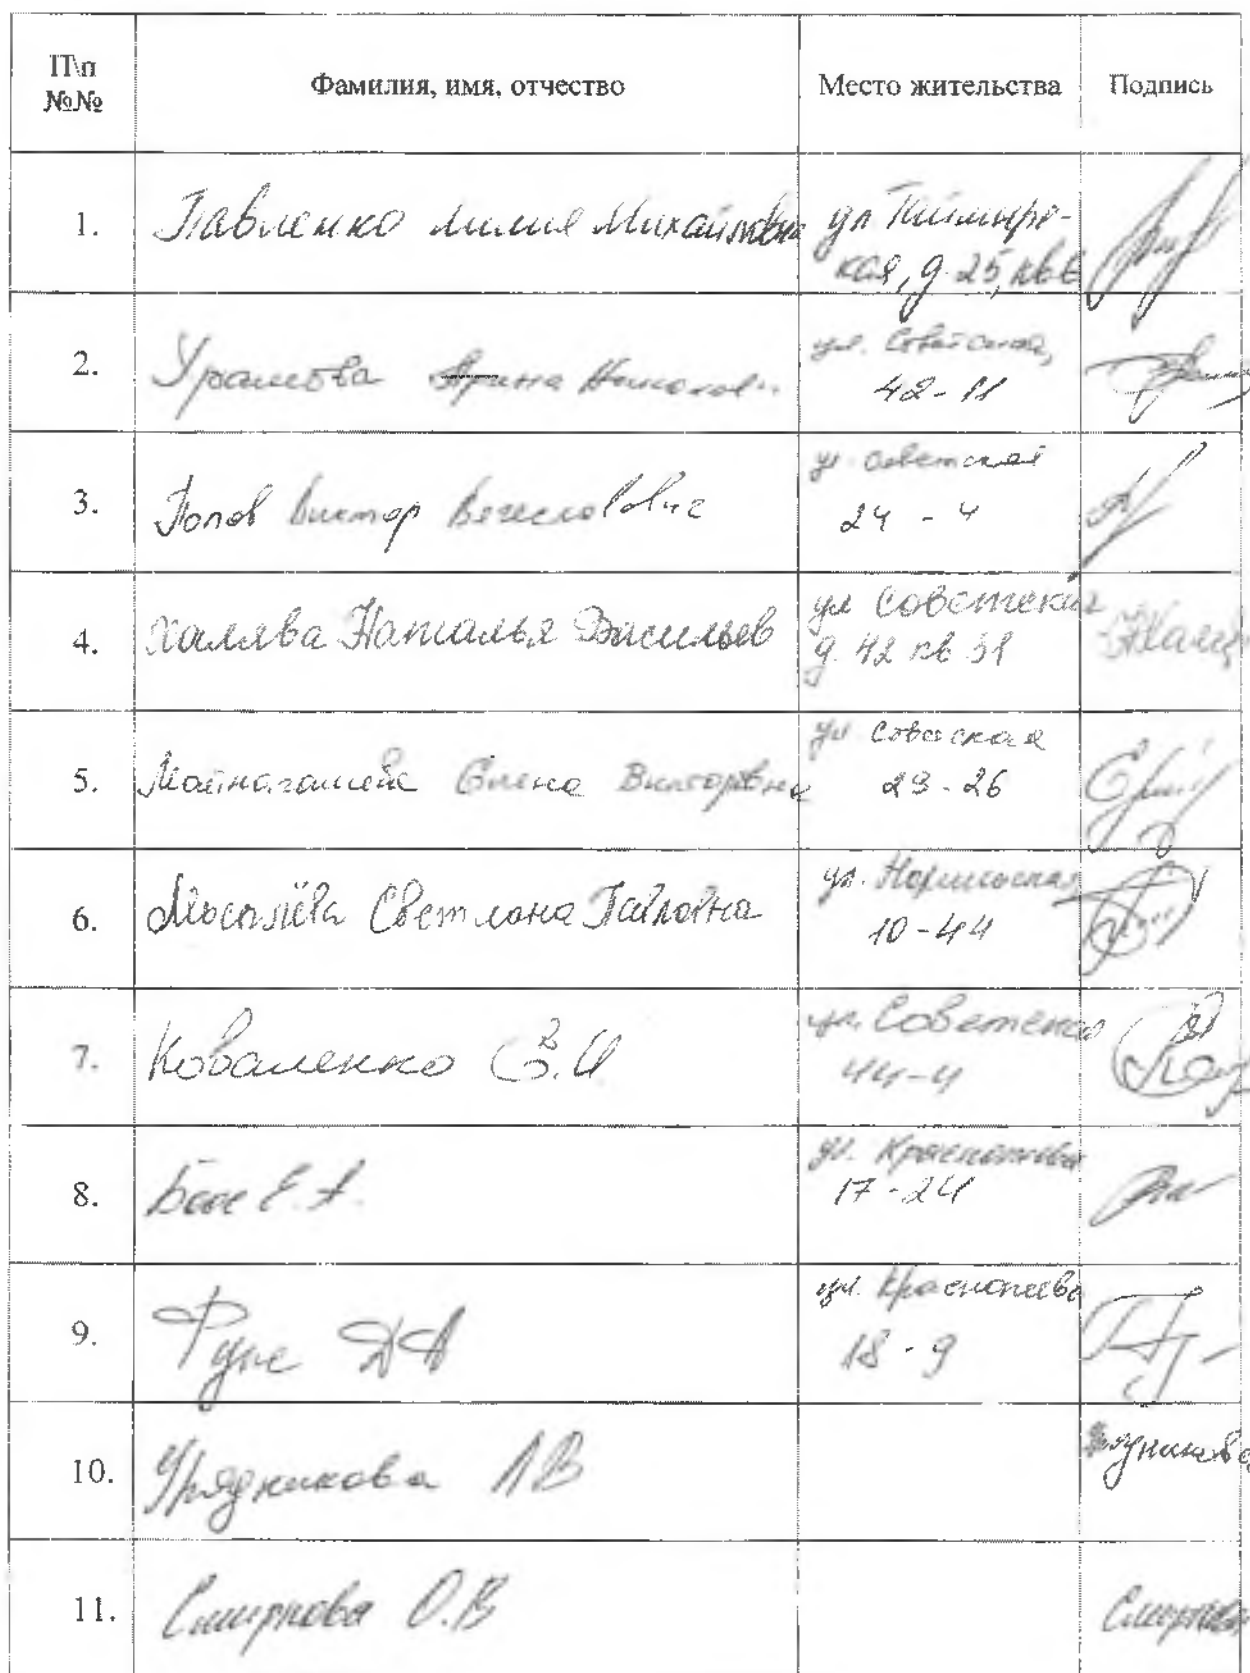 П\п
№№
Фамилия, имя, отчество
Место жительства
Подпись
1.
Павленко Лилия Михайловна
ул Таймырс-
кая, д. 25, кв 6
2.
Урамова Арина
ул. Советская,
42-11
3.
Попов Виктор Вечеславович
ул Советская
24 - 4
4.
Халява Наталья Васильев
ул Советская
д. 42 кв 51
5.
Майнагашева Елена Викторовна
ул Советская
29-26
6.
Светлана Павловна
ул. Норильская
10-44
7.
Коваленко
ул. Советская
44-4
8.
Е.А.
ул.
17-24
9.
ДА
ул.
18-9
10.
Урядникова Л В
11.
Смирнова О.В
Смирнова